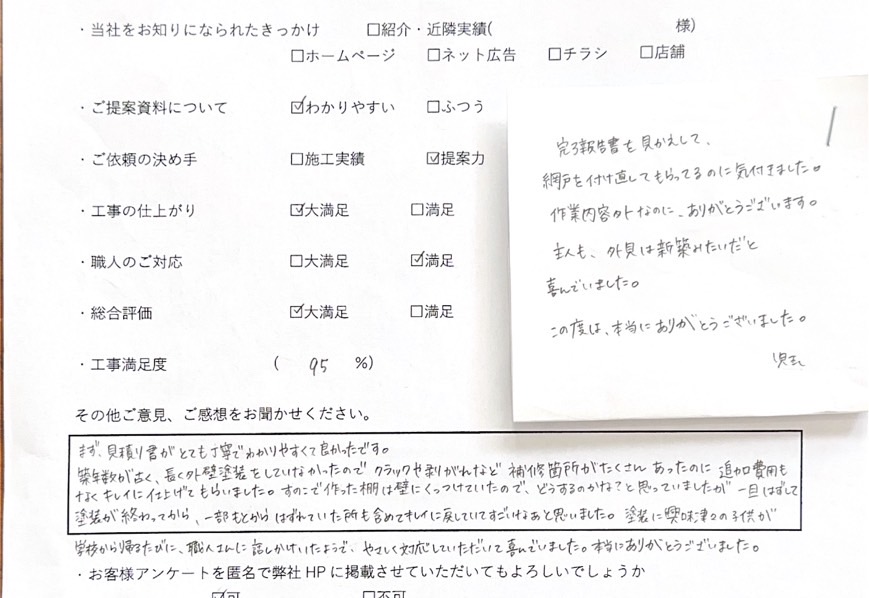 ・当社をお知りになられたきっかけ　□紹介・近隣実績(　　　様)
□ホームページ　□ネット広告　□チラシ　□店舗
・ご提案資料について　☑わかりやすい　□ふつう
・ご依頼の決め手　□施工実績　☑提案力
・工事の仕上がり　☑大満足　□満足
・職人のご対応　□大満足　☑満足
・総合評価　☑大満足　□満足
・工事満足度　(　95　%)
完了報告書を見かえして、
網戸を付け直してもらってるのに気付きました。
作業内容外なのに、ありがとうございます。
主人も、外見は新築みたいだと
喜んでいました。
この度は、本当にありがとうございました。
その他ご意見、ご感想をお聞かせください。
まず、見積り書がとても丁寧でわかりやすくて良かったです。
築年数が古く、長く外壁塗装をしていなかったので クラックや剥がれなど 補修箇所がたくさん あったのに 追加費用も
なくキレイに仕上げてもらいました。すのこで作った棚は壁にくっつけていたので、どうするのかな？と思っていましたが 一旦はずして
塗装が終わってから、一部もとからはずれていた所も含めてキレイに戻していてすごいなあと思いました。塗装に興味津々の子供が
学校から帰るたびに、職人さんに話しかけていたようで、やさしく対応していただいて喜んでいました。本当にありがとうございました。
・お客様アンケートを匿名で弊社HPに掲載させていただいてもよろしいでしょうか
☑可　□不可